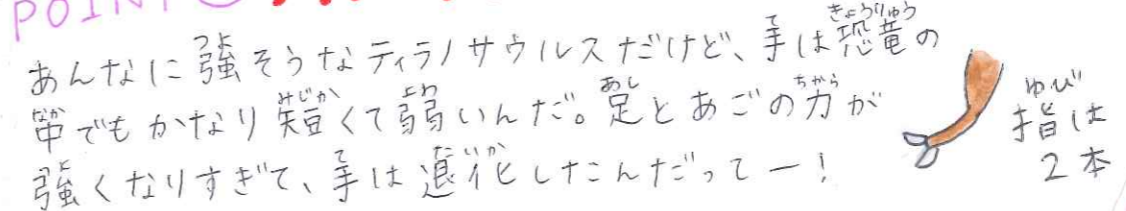 POINT
あんなに強そうなティラノサウルスだけど、手は恐竜の
中でもかなり短くて弱いんだ。足とあごの力が
強くなりすぎて、手は退化したんだってー！
指は
2本